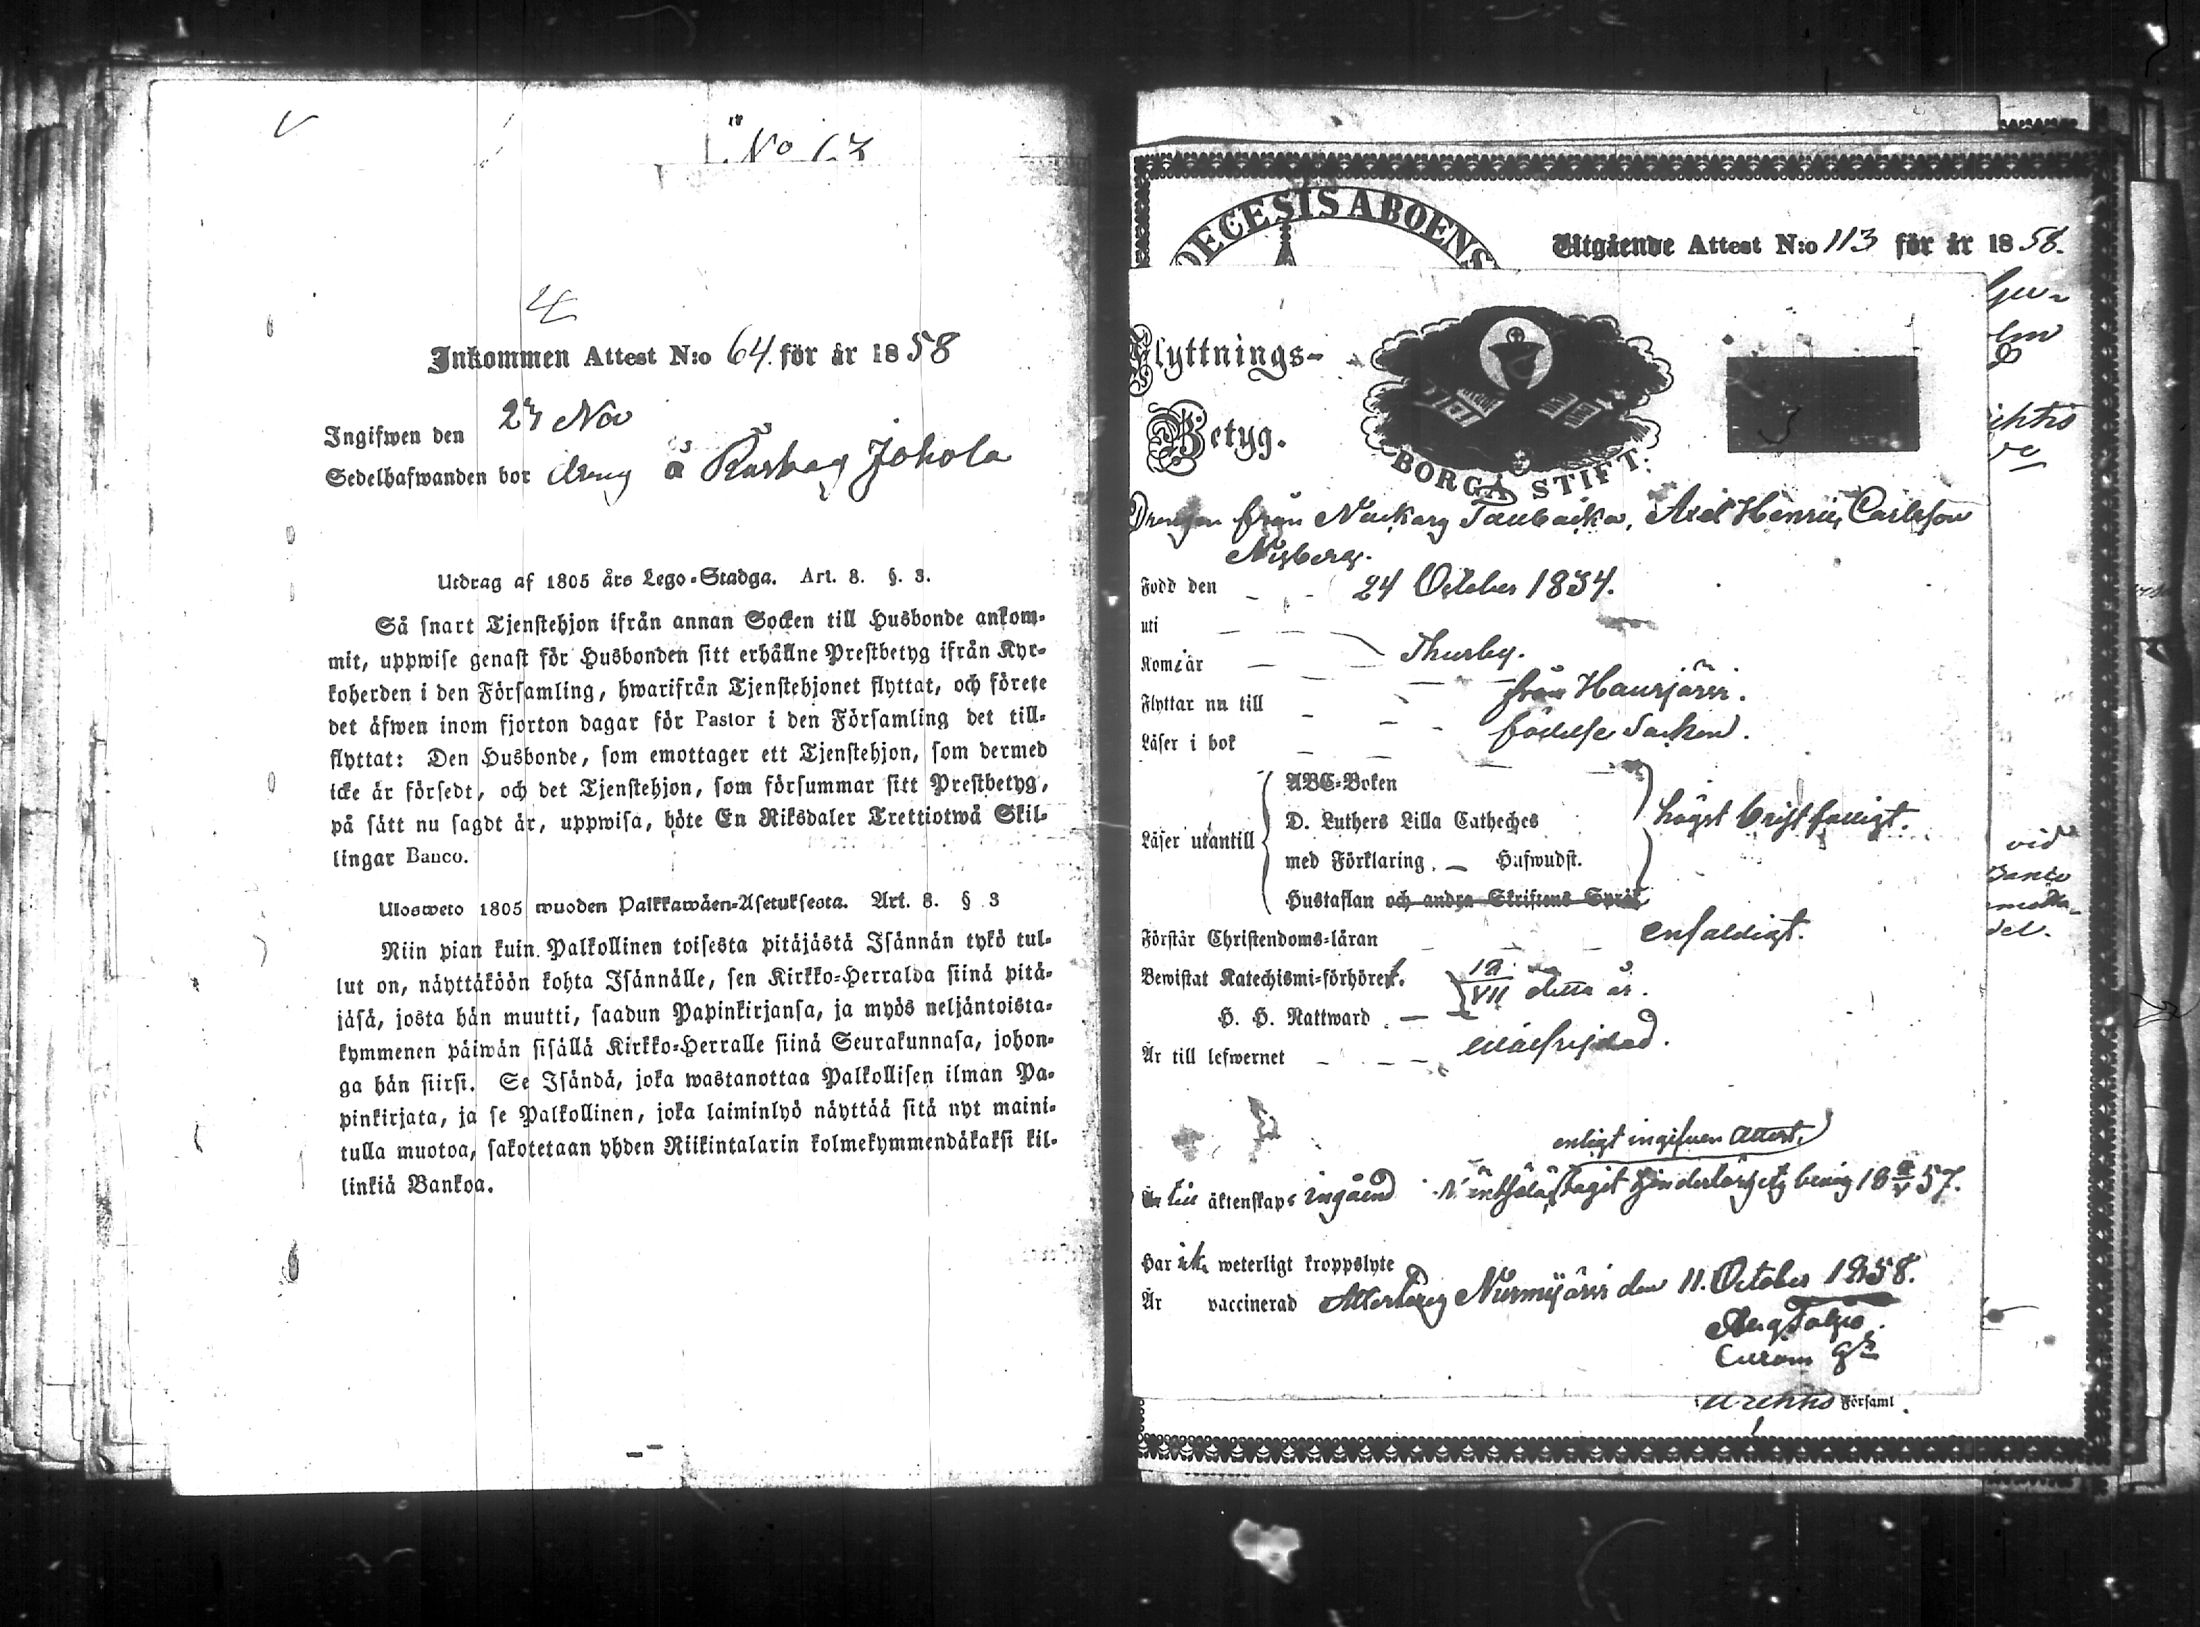 No 63
Inkommen Attest N:o 64 för år 1858
Ingifwen den 23 Nov
Sedelhafwanden bor dreng å Rusbacg Johola
Utdrag af 1805 års Lego-Stadga. Art. 8. §. 3.
Så snart Tjenstehjon ifrån annan Socken till Husbonde ankom-
mit, uppwise genast för Husbonden sitt erhållne Prestbetyg ifrån Kyr-
koherden i den Församling, hwarifrån Tjenstehjonet flyttat, och förete
det äfwen inom fjorton dagar för Pastor i den Församling det till-
flyttat: Den Husbonde, som emottager ett Tjenstehjon, som dermed
icke är försedt, och det Tjenstehjon, som försummar sitt Prestbetyg,
på sätt nu sagdt är, uppwisa, böte En Riksdaler Trettiotwå Skil-
lingar Banco.
Ulosweto 1805 wuoden Palkkawäen-Asetuksesta. Art. 8. § 3
Niin pian kuin Palkollinen toisesta pitäjästä Isännän tykö tul-
lut on, näyttäköön kohta Isännälle, sen Kirkko-Herralda siinä pitä-
jäsä, josta hän muutti, saadun Papinkirjansa, ja myös neljäntoista-
kymmenen päiwän sisällä Kirkko-Herralle siinä Seurakunnasa, johon-
ga hän siirsi. Se Isändä, joka wastanottaa Palkollisen ilman Pa-
pinkirjata, ja se Palkollinen, joka laiminlyö näyttää sitä nyt maini-
tulla muotoa, sakotetaan yhden Riikintalarin kolmekymmendäkaksi kil-
linkiä Bankoa.
DECESIS ABOENS
Utgående Attest N:o 113 för år 1858.
Flyttnings-
Betyg.
BORGÅ STIFT.
Drengen från Nackarg Taubacka, Axel Henric Carlsson
Nyberg.
Född den 24 October 1834.
uti Thusby.
Kom i år från Hausjärvi.
Flyttar nu till födelse Socken.
Läser i bok
Läser utantill
ABC-Boken
D. Luthers Lilla Catheches
med Förklaring. Hufwudst.
Hustaflan och andra Skriftens Språk
högst bristfälligt.
Förstår Christendoms-läran enfaldigt.
Bewistat Katechismi-förhören. 12/VII detta år.
H. H. Nattward
Är till lefwernet wälfrejdad.
enligt ingifven attest,
till äktenskaps ingående hinderlöshets betyg 18 57.
Har ick weterligt kroppslyte
Är vaccinerad Attesterar Nurmijärvi den 11. October 1858.
Församl